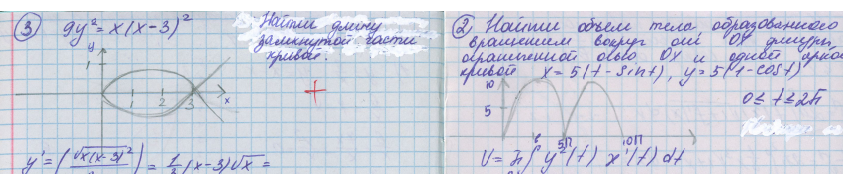 ③ 9y² = x(x-3)²
Найти длину
замкнутой части
кривой.
y
1
1 2 3 x
y' = (√x(x-3)²
= 1/3 (x-3)√x =
② Найти объем тела, образованного
вращением вокруг оси OX фигуры,
ограниченной осью OX и одной аркой
кривой x = 5(t - sint), y = 5(1-cost)
0 ≤ t ≤ 2π
10
5
5π 10π
V = π∫ y²(t) x'(t) dt